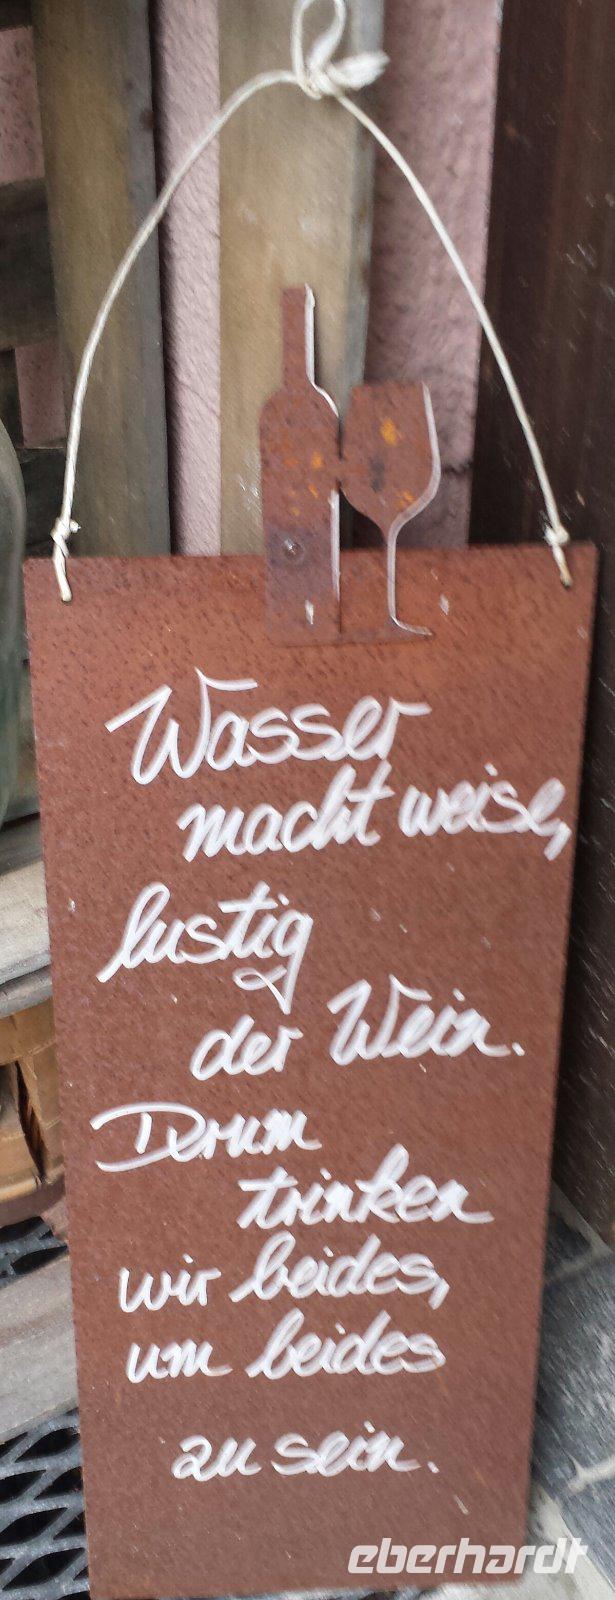 Wasser
macht weise,
lustig
der Wein.
Drum
trinken
wir beides,
um beides
zu sein.
eberhardt